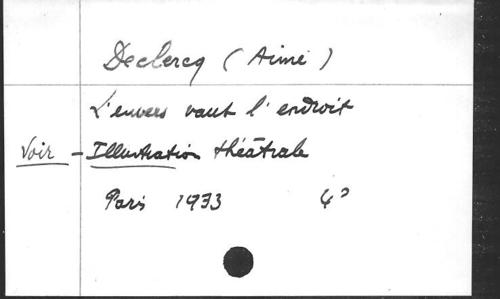 Declercq (Aimé)
L'envers vaut l'endroit
Voir - Illustration théâtrale
Paris 1933 4°